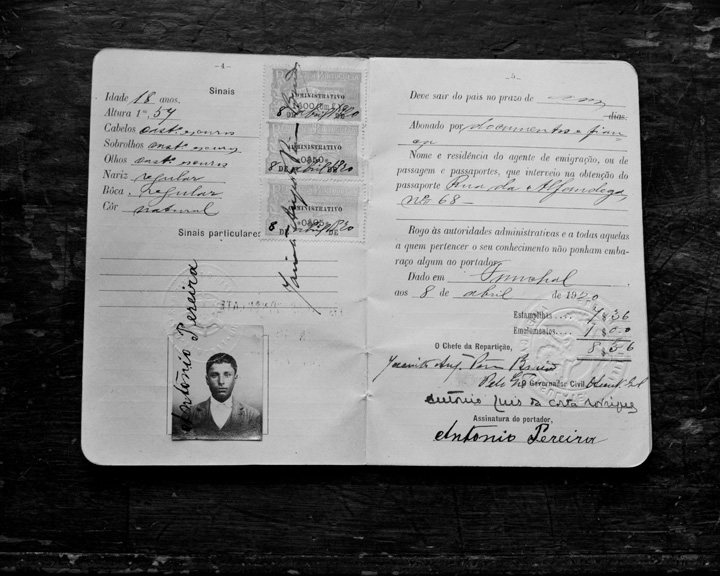 -4-
Sinais
Idade 18 anos.
Altura 1m, 57
Cabelos cast. escuros
Sobrolhos cast. escuros
Olhos cast. escuros
Nariz regular
Bôca, regular
Côr natural
Sinais particulares
ADMINISTRATIVO
8 DE abril 1920
ADMINISTRATIVO
8 DE abril 1920
ADMINISTRATIVO
8 DE abril 1920
Antonio Pereira
-5-
Deve sair do país no prazo de um
dias.
Abonado por documentos e fian-
ça
Nome e residência do agente de emigração, ou de
passagem e passaportes, que interveio na obtenção do
passaporte Rua da Alfandega,
Nº 68-
Rogo às autoridades administrativas e a todas aquelas
a quem pertencer o seu conhecimento não ponham emba-
raço algum ao portador.
Dado em Funchal
aos 8 de abril de 1920
Estampilhas.... 7$36
Emolumentos....
8$56
O Chefe da Repartição,
O Governador Civil
Antonio Luis da Costa Rodrigues
Assinatura do portador,
Antonio Pereira